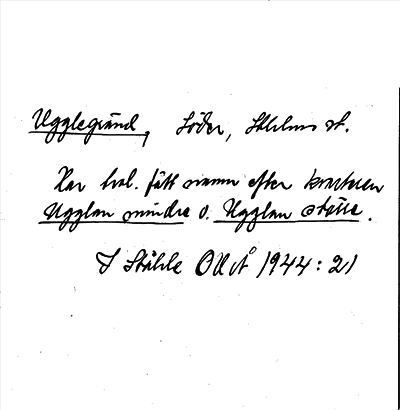 Ugglegränd, Söder, Sthlms st.
Har trol. fått namn efter kvarteren
Ugglan mindre o. Ugglan större.
I Ståhle OUÅ 1944:21